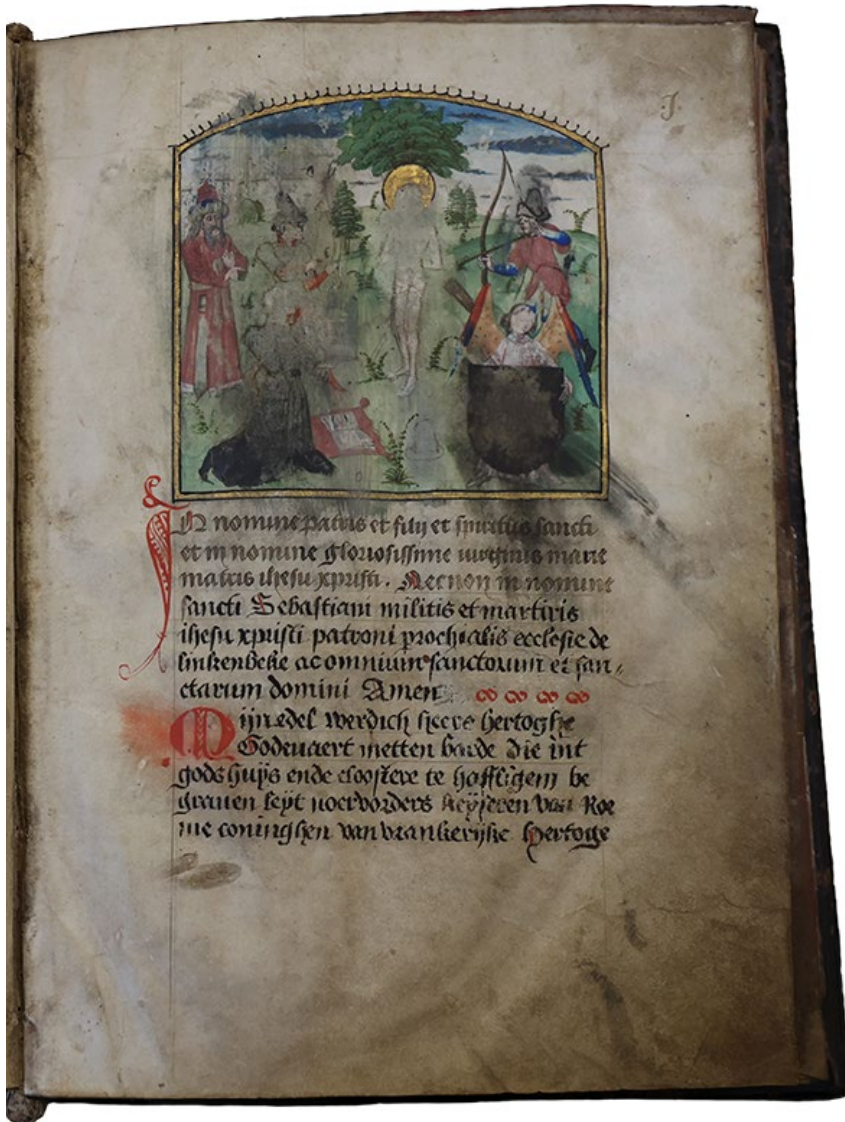 J.
In nomine patris et filij et spiritus sancti
et in nomine gloriosissime virginis marie
matris ihesu xpristi. Necnon in nomine
sancti Sebastiani militis et martiris
ihesu xpristi patroni prochialis ecclesie de
linkenbeke ac omnium sanctorum et san-
ctarum domini Amen
Mijn edel werdich heere hertoghe
Godevaert metten barde die int
gods huijs ende cloostere te haffligem be
graven leijt voervorders keyseren van Roe
me coninghen van vrankerijke hertoge